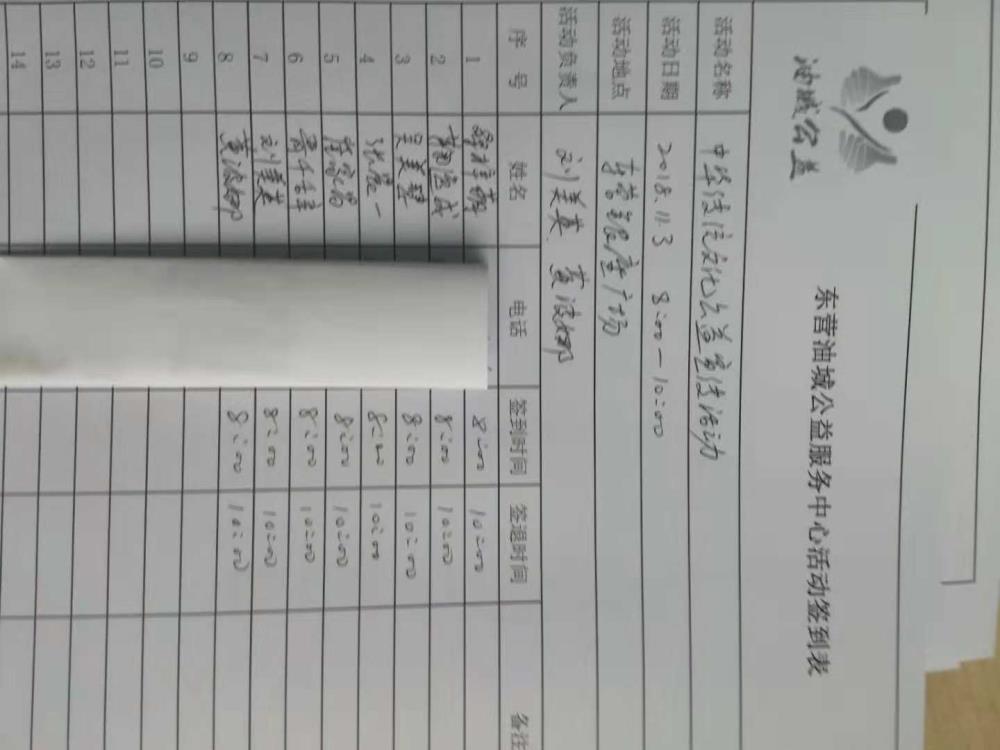 油城公益
东营油城公益服务中心活动签到表
活动名称 中华传统文化公益宣传活动
活动日期 2018.11.3 8:00—10:00
活动地点 东营银座广场
活动负责人 刘美英 黄波娜
序号 姓名 电话 签到时间 签退时间 备注
1 8:00 10:00
2 8:00 10:00
3 吴美琴 8:00 10:00
4 张宸一 8:00 10:00
5 8:00 10:00
6 8:00 10:00
7 刘美英 8:00 10:00
8 黄波娜 8:00 10:00
9
10
11
12
13
14